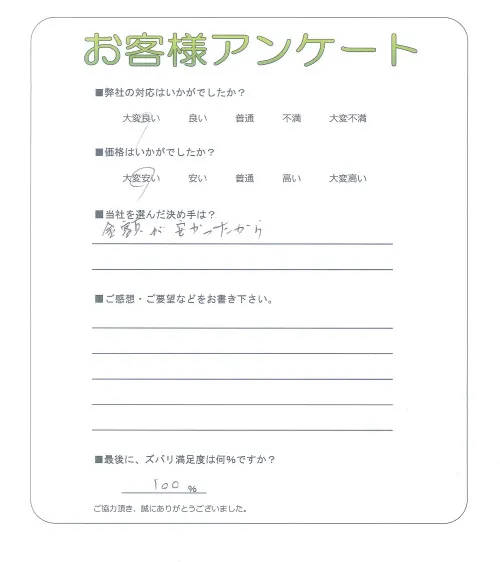 お客様アンケート
■弊社の対応はいかがでしたか？
大変良い 良い 普通 不満 大変不満
■価格はいかがでしたか？
大変安い 安い 普通 高い 大変高い
■当社を選んだ決め手は？
金額が安かったから
■ご感想・ご要望などをお書き下さい。
■最後に、ズバリ満足度は何%ですか？
100 %
ご協力頂き、誠にありがとうございました。